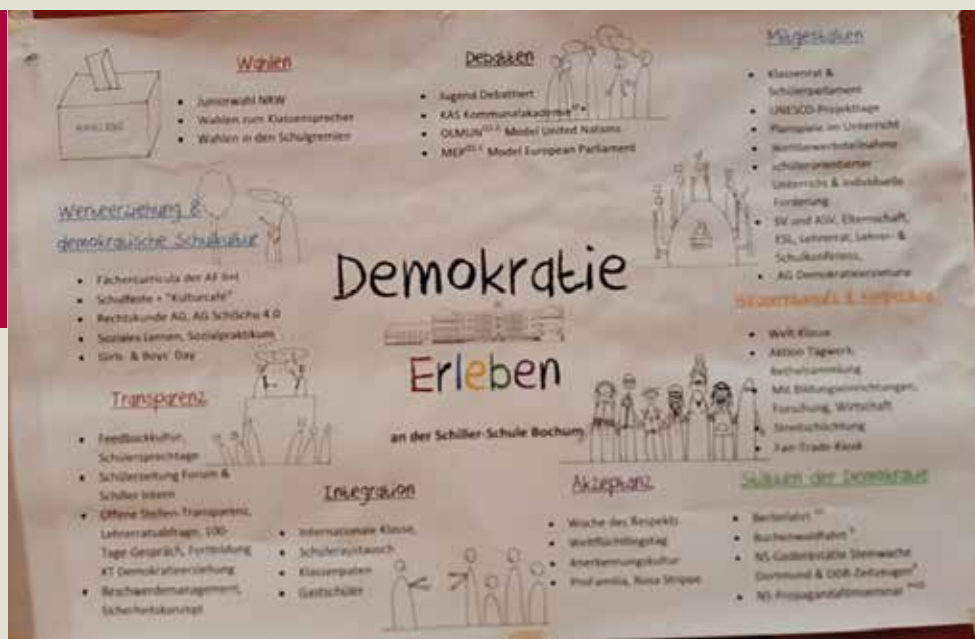 Wahlen
Juniorwahl NRW
Wahlen zum Klassensprecher
Wahlen in den Schulgremien
Debatten
Jugend Debattiert
KAS Kommunalakademie
OLMUN Model United Nations
MEP Model European Parliament
Mitgestalten
Klassenrat &
Schülerparlament
UNESCO-Projekttage
Planspiele im Unterricht
Wettbewerbsteilnahme
schülerorientierter
Unterricht & individuelle
Förderung
SV und ASV, Elternschaft,
ESL, Lehrerrat, Lehrer- &
Schulkonferenz,
AG Demokratieerziehung
Werteerziehung &
demokratische Schulkultur
Fächercurricula der AF I+II
Schulfeste + "Kulturcafe"
Rechtskunde AG, AG SchöSchu 4.0
Soziales Lernen, Sozialpraktikum
Girls- & Boys' Day
Demokratie
Erleben
an der Schiller-Schule Bochum
Welt-Klasse
Aktion Tagwerk,
Bethelsammlung
Mit Bildungseinrichtungen,
Forschung, Wirtschaft
Streitschlichtung
Fair-Trade-Kiosk
Transparenz
Feedbackkultur,
Schülersprechtage
Schülerzeitung Forum &
Schiller Intern
Offene Stellen-Transparenz,
Lehrerratsabfrage, 100-
Tage-Gespräch, Fortbildung
KT Demokratieerziehung
Beschwerdemanagement,
Sicherheitskonzept
Integration
Internationale Klasse,
Schüleraustausch
Klassenpaten
Gastschüler
Akzeptanz
Woche des Respekts
Weltflüchtlingstag
Anerkennungskultur
ProFamilia, Rosa Strippe
Stätten der Demokratie
Berlinfahrt
Buchenwaldfahrt
NS-Gedenkstätte Steinwache
Dortmund & DDR-Zeitzeugen
NS-Propagandafilmseminar